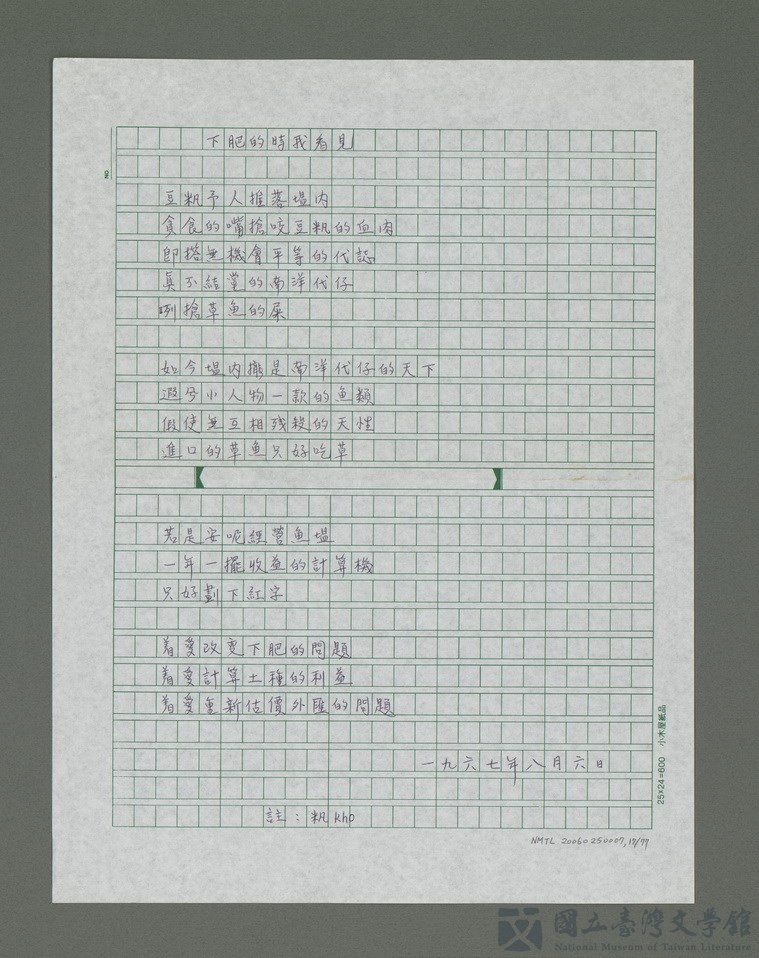 下肥的時我看見
豆籸予人推落塭內
貪食的嘴搶咬豆籸的血肉
即搭無機會平等的代誌
真不結黨的南洋代仔
咧搶草魚的屎
如今塭內攏是南洋代仔的天下
遐兮小人物一款的魚類
假使無互相殘殺的天性
進口的草魚只好吃草
若是安呢經營魚塭
一年一擺收益的計算機
只好劃下紅字
着愛改變下肥的問題
着愛計算土種的利益
着愛重新估價外匯的問題
一九六七年八月六日
註：籸kho
NO.
25×24=600 小木屋紙品
NMTL 20060250007,17/77
國立臺灣文學館
National Museum of Taiwan Literature